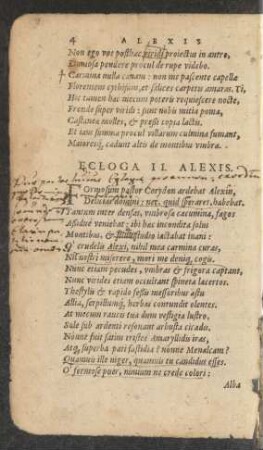 4 ALEXIS
Non ego vos posthac viridi proiectus in antro,
Dumosa pendere procul de rupe videbo.
Carmina nulla canam: non me pascente capellæ
Florentem cythisum, et salices carpetis amaras. Ti,
Hic tamen hac mecum poteris requiescere nocte,
Fronde super viridi: sunt nobis mitia poma,
Castaneæ molles, & pressi copia lactis.
Et iam summa procul villarum culmina fumant,
Maioresq; cadunt altis de montibus vmbræ.
ECLOGA II. ALEXIS.
Formosum pastor Corydon ardebat Alexin,
Delicias domini: nec, quid speraret, habebat.
Tantum inter densas, vmbrosa cacumina, fagos
Assidue veniebat: ibi hæc incondita solus
Montibus, & siluis studio iactabat inani:
O' crudelis Alexi, nihil mea carmina curas,
Nil nostri miserere, mori me deniq; cogis.
Nunc etiam pecudes, vmbras & frigora captant,
Nunc virides etiam occultant spineta lacertos.
Thestylis & rapido fessis messoribus æstu
Allia, serpillumq; herbas contundit olentes.
At mecum raucis tua dum vestigia lustro,
Sole sub ardenti resonant arbusta cicadis.
Nonne fuit satius tristes Amaryllidis iras,
Atq; superba pati fastidia? nonne Menalcam?
Quamuis ille niger, quamuis tu candidus esses.
O' formose puer, nimium ne crede colori:
Alba